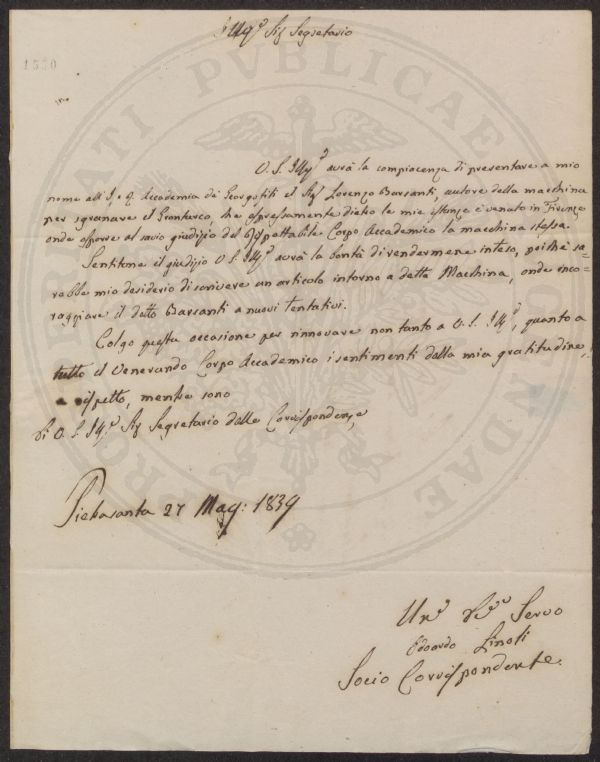 Illmo Sig Segretario
1550
V. S. Illma avrà la compiacenza di presentare a mio
nome all' I. e R. Accademia dei Georgofili il Sig Lorenzo Barsanti, autore della macchina
per sgranare il Granturco, che espressamente dietro le mie istanze è venuto in Firenze
onde esporre al savio giudizio del Rispettabile Corpo Accademico la macchina stessa.
Sentitone il giudizio V. S. Illma avrà la bontà di rendermene inteso, poichè sa=
rebbe mio desiderio di scrivere un articolo intorno a detta Macchina, onde inco=
raggiare il detto Barsanti a nuovi tentativi.
Colgo questa occasione per rinnovare non tanto a V. S. Illma, quanto a
tutto il Venerando Corpo Accademico i sentimenti della mia gratitudine,
e rispetto, mentre sono
Di V. S. Illma Sig Segretario delle Corrispondenze
Pietrasanta 27 Mag: 1839
Servo
Edoardo Linoli
Socio Corrispondente.